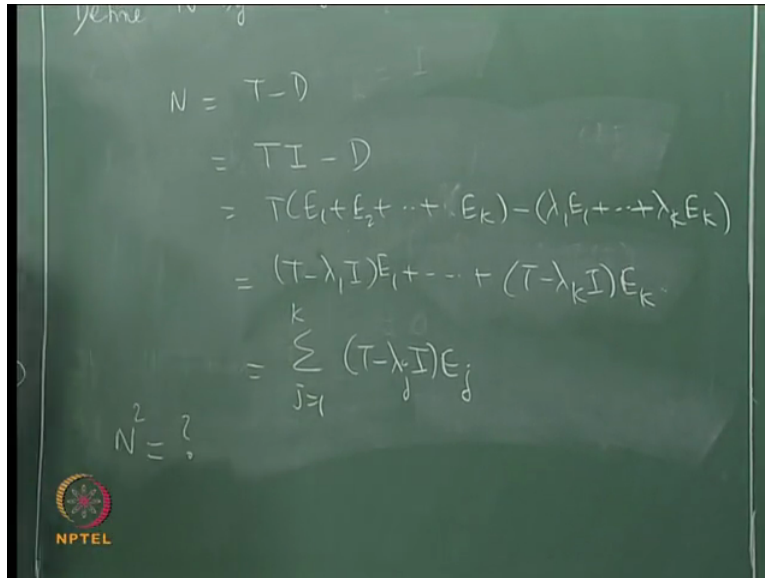 Define N by
N = T - D
= TI - D
= T(E₁ + E₂ + ·· + E_k) - (λ₁E₁ + ·· + λ_kE_k)
= (T - λ₁I)E₁ + --- + (T - λ_kI)E_k.
= ∑_{j=1}^{k} (T - λ_jI)E_j
N² = ?
NPTEL